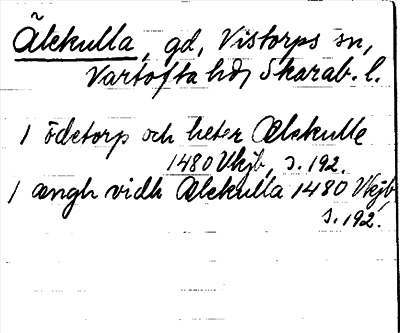 Älekulla, gd, Vistorps sn,
Vartofta hd, Skarab. l.
1 ödetorp och heter Ælekulle
1480 Vkjb, s. 192.
1 ængh vidh Ælekulla 1480 Vkjb,
s. 192.